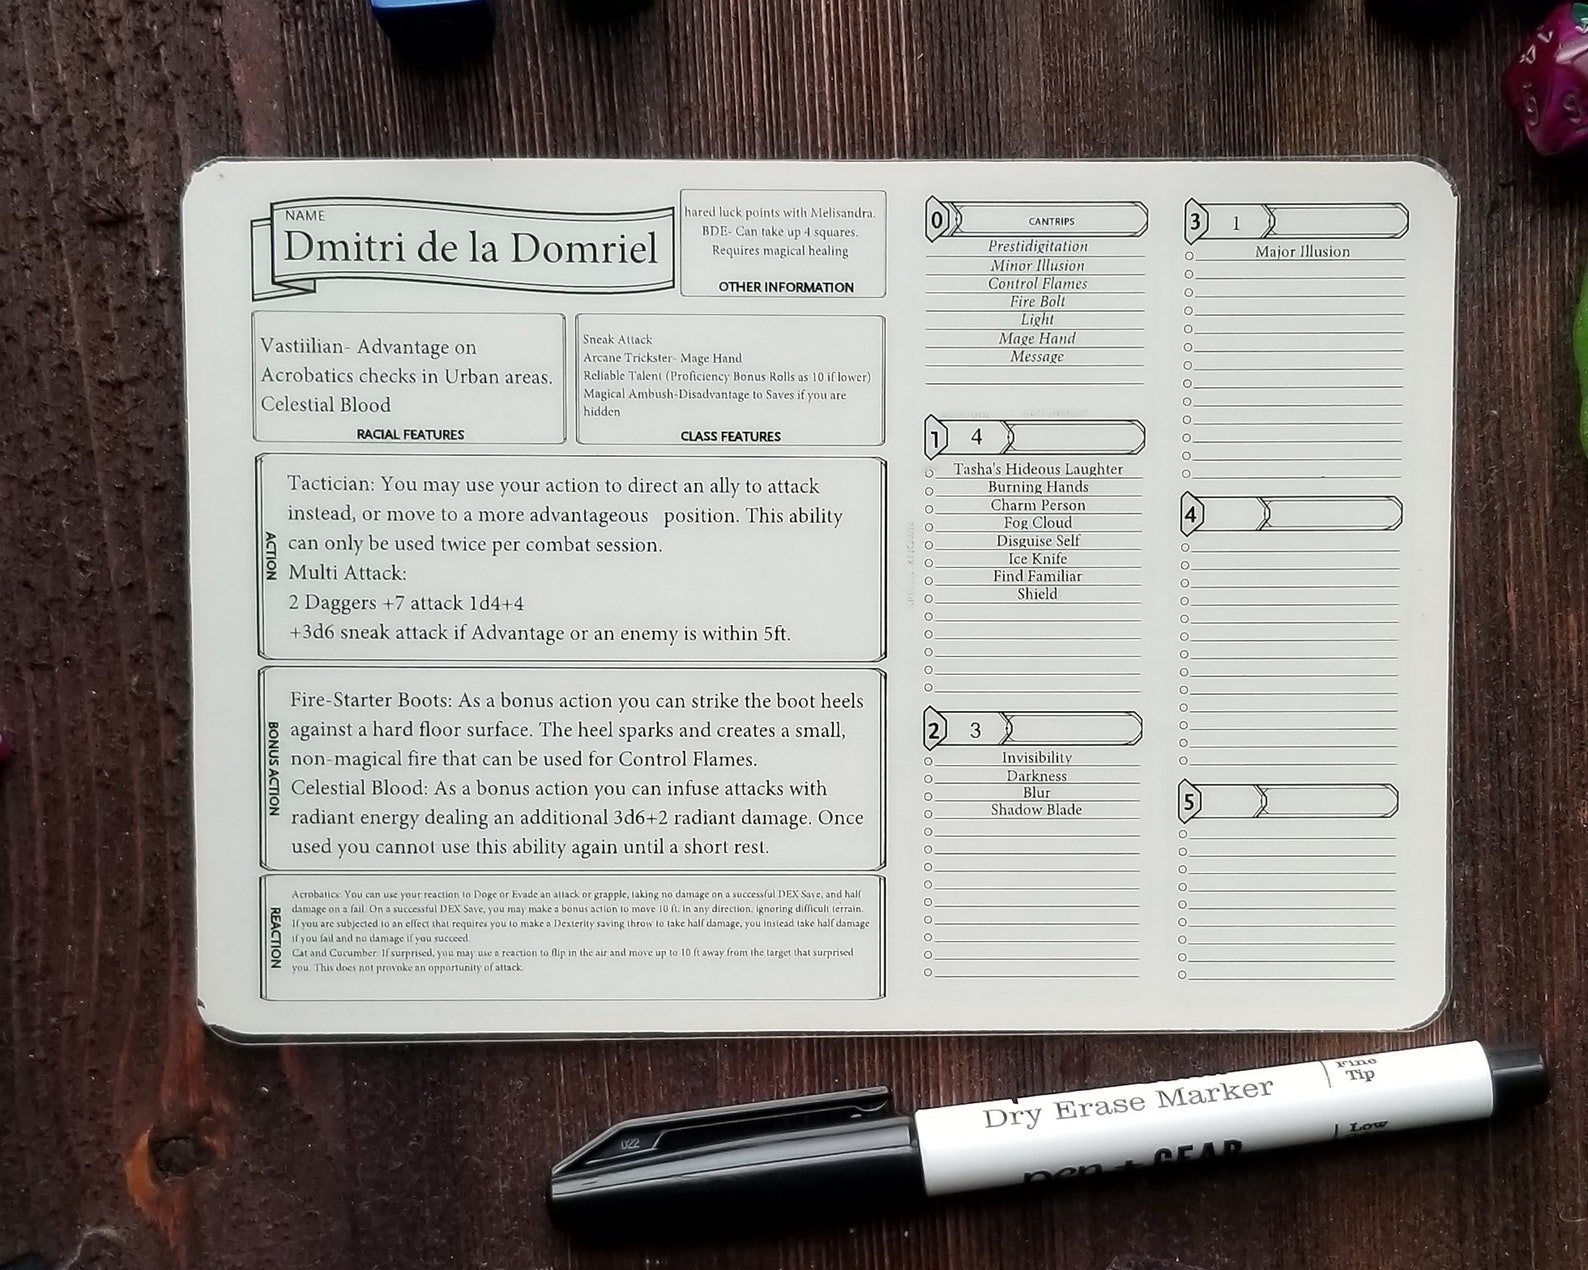 NAME
Dmitri de la Domriel
hared luck points with Melisandra.
BDE- Can take up 4 squares.
Requires magical healing
OTHER INFORMATION
Vastiilian- Advantage on
Acrobatics checks in Urban areas.
Celestial Blood
RACIAL FEATURES
Sneak Attack
Arcane Trickster- Mage Hand
Reliable Talent (Proficiency Bonus Rolls as 10 if lower)
Magical Ambush-Disadvantage to Saves if you are
hidden
CLASS FEATURES
ACTION
Tactician: You may use your action to direct an ally to attack
instead, or move to a more advantageous position. This ability
can only be used twice per combat session.
Multi Attack:
2 Daggers +7 attack 1d4+4
+3d6 sneak attack if Advantage or an enemy is within 5ft.
BONUS ACTION
Fire-Starter Boots: As a bonus action you can strike the boot heels
against a hard floor surface. The heel sparks and creates a small,
non-magical fire that can be used for Control Flames.
Celestial Blood: As a bonus action you can infuse attacks with
radiant energy dealing an additional 3d6+2 radiant damage. Once
used you cannot use this ability again until a short rest.
REACTION
Acrobatics: You can use your reaction to Doge or Evade an attack or grapple, taking no damage on a successful DEX Save, and half
damage on a fail. On a successful DEX Save, you may make a bonus action to move 10 ft. in any direction, ignoring difficult terrain.
If you are subjected to an effect that requires you to make a Dexterity saving throw to take half damage, you instead take half damage
if you fail and no damage if you succeed.
Cat and Cucumber: If surprised, you may use a reaction to flip in the air and move up to 10 ft away from the target that surprised
you. This does not provoke an opportunity of attack.
0 CANTRIPS
Prestidigitation
Minor Illusion
Control Flames
Fire Bolt
Light
Mage Hand
Message
1 4
Tasha's Hideous Laughter
Burning Hands
Charm Person
Fog Cloud
Disguise Self
Ice Knife
Find Familiar
Shield
2 3
Invisibility
Darkness
Blur
Shadow Blade
3 1
Major Illusion
4
5
Dry Erase Marker
Fine
Tip
Low
pen + GEAR
022